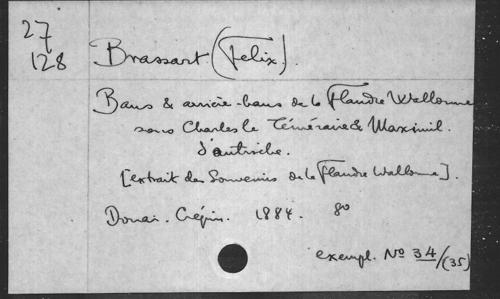 27
128
Brassart (Felix).
Bans & arrière-bans de la Flandre Wallonne
sous Charles le Téméraire & Maximil.
d'autriche.
[extrait des Souvenirs de la Flandre Wallonne].
Douai. Crépin. 1884. 8o
exempl. No 34/(35)